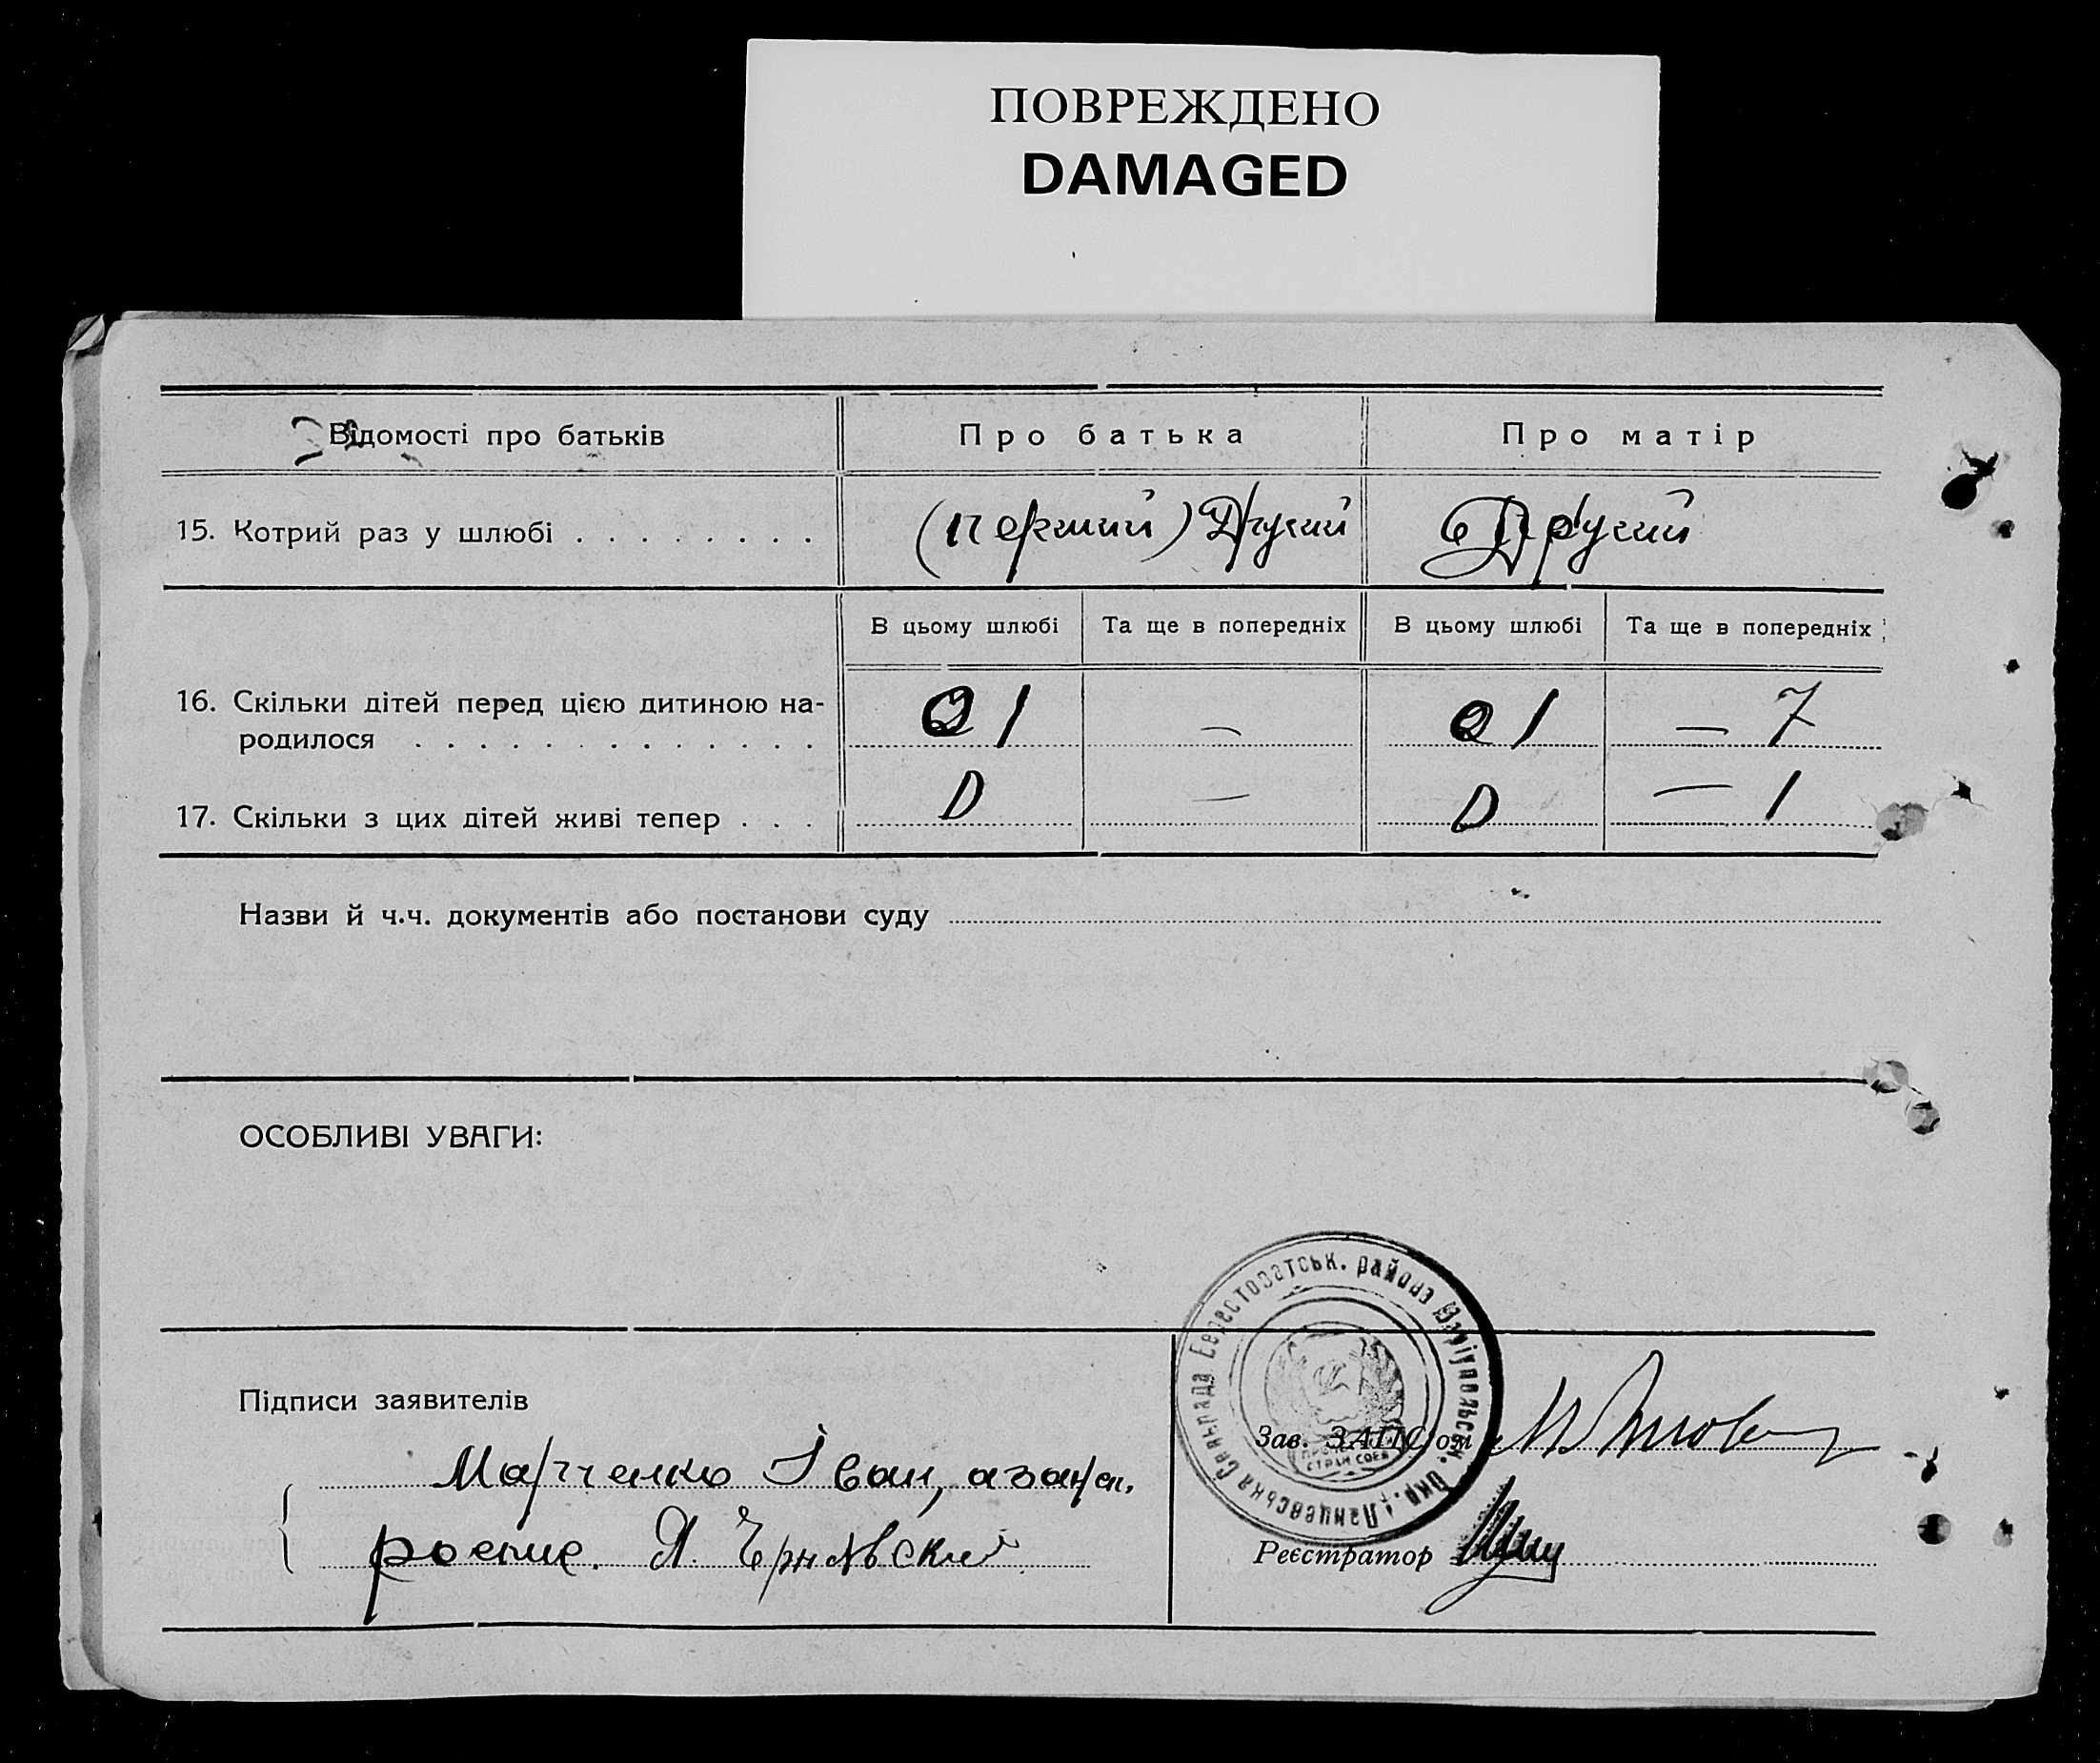 ПОВРЕЖДЕНО
DAMAGED
Відомості про батьків
Про батька
Про матір
15. Котрий раз у шлюбі
(перший) Другий
Другий
В цьому шлюбі
Та ще в попередніх
В цьому шлюбі
Та ще в попередніх
16. Скільки дітей перед цією дитиною на-
родилося
1
—
1
— 7
17. Скільки з цих дітей живі тепер
0
—
0
— 1
Назви й ч.ч. документів або постанови суду
ОСОБЛИВІ УВАГИ:
Підписи заявителів
Марченко Іван,
Я.
Зав. ЗАПСом
Реєстратор
сільрада Берестоватськ. району Маріупольськ. Окр.